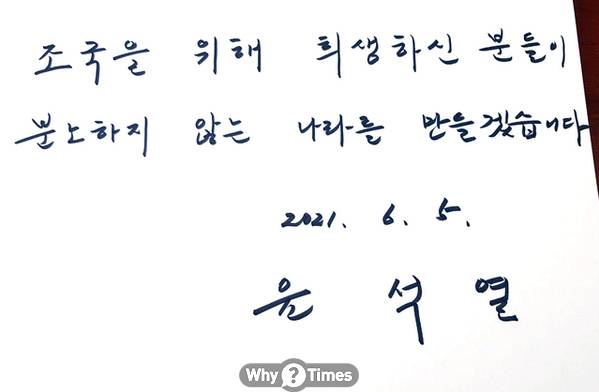 조국을 위해 희생하신 분들이
분노하지 않는 나라를 만들겠습니다
2021. 6. 5.
윤 석 열
Why ? Times